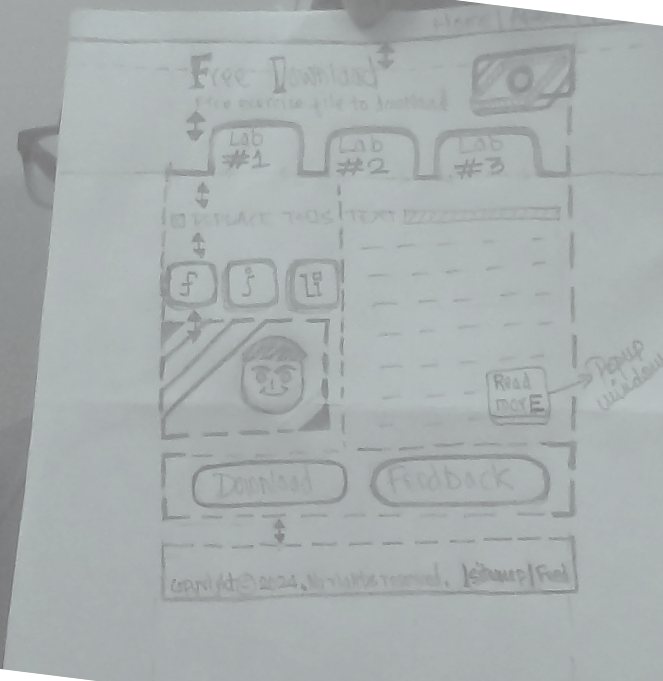 Home |
Free Download
Free exercise file to download
Lab #1
Lab #2
Lab #3
REPLACE THIS TEXT
f
Read morE
Popup window
Download
Feedback
copyright © 2024. All rights reserved. |sitemap| Feed